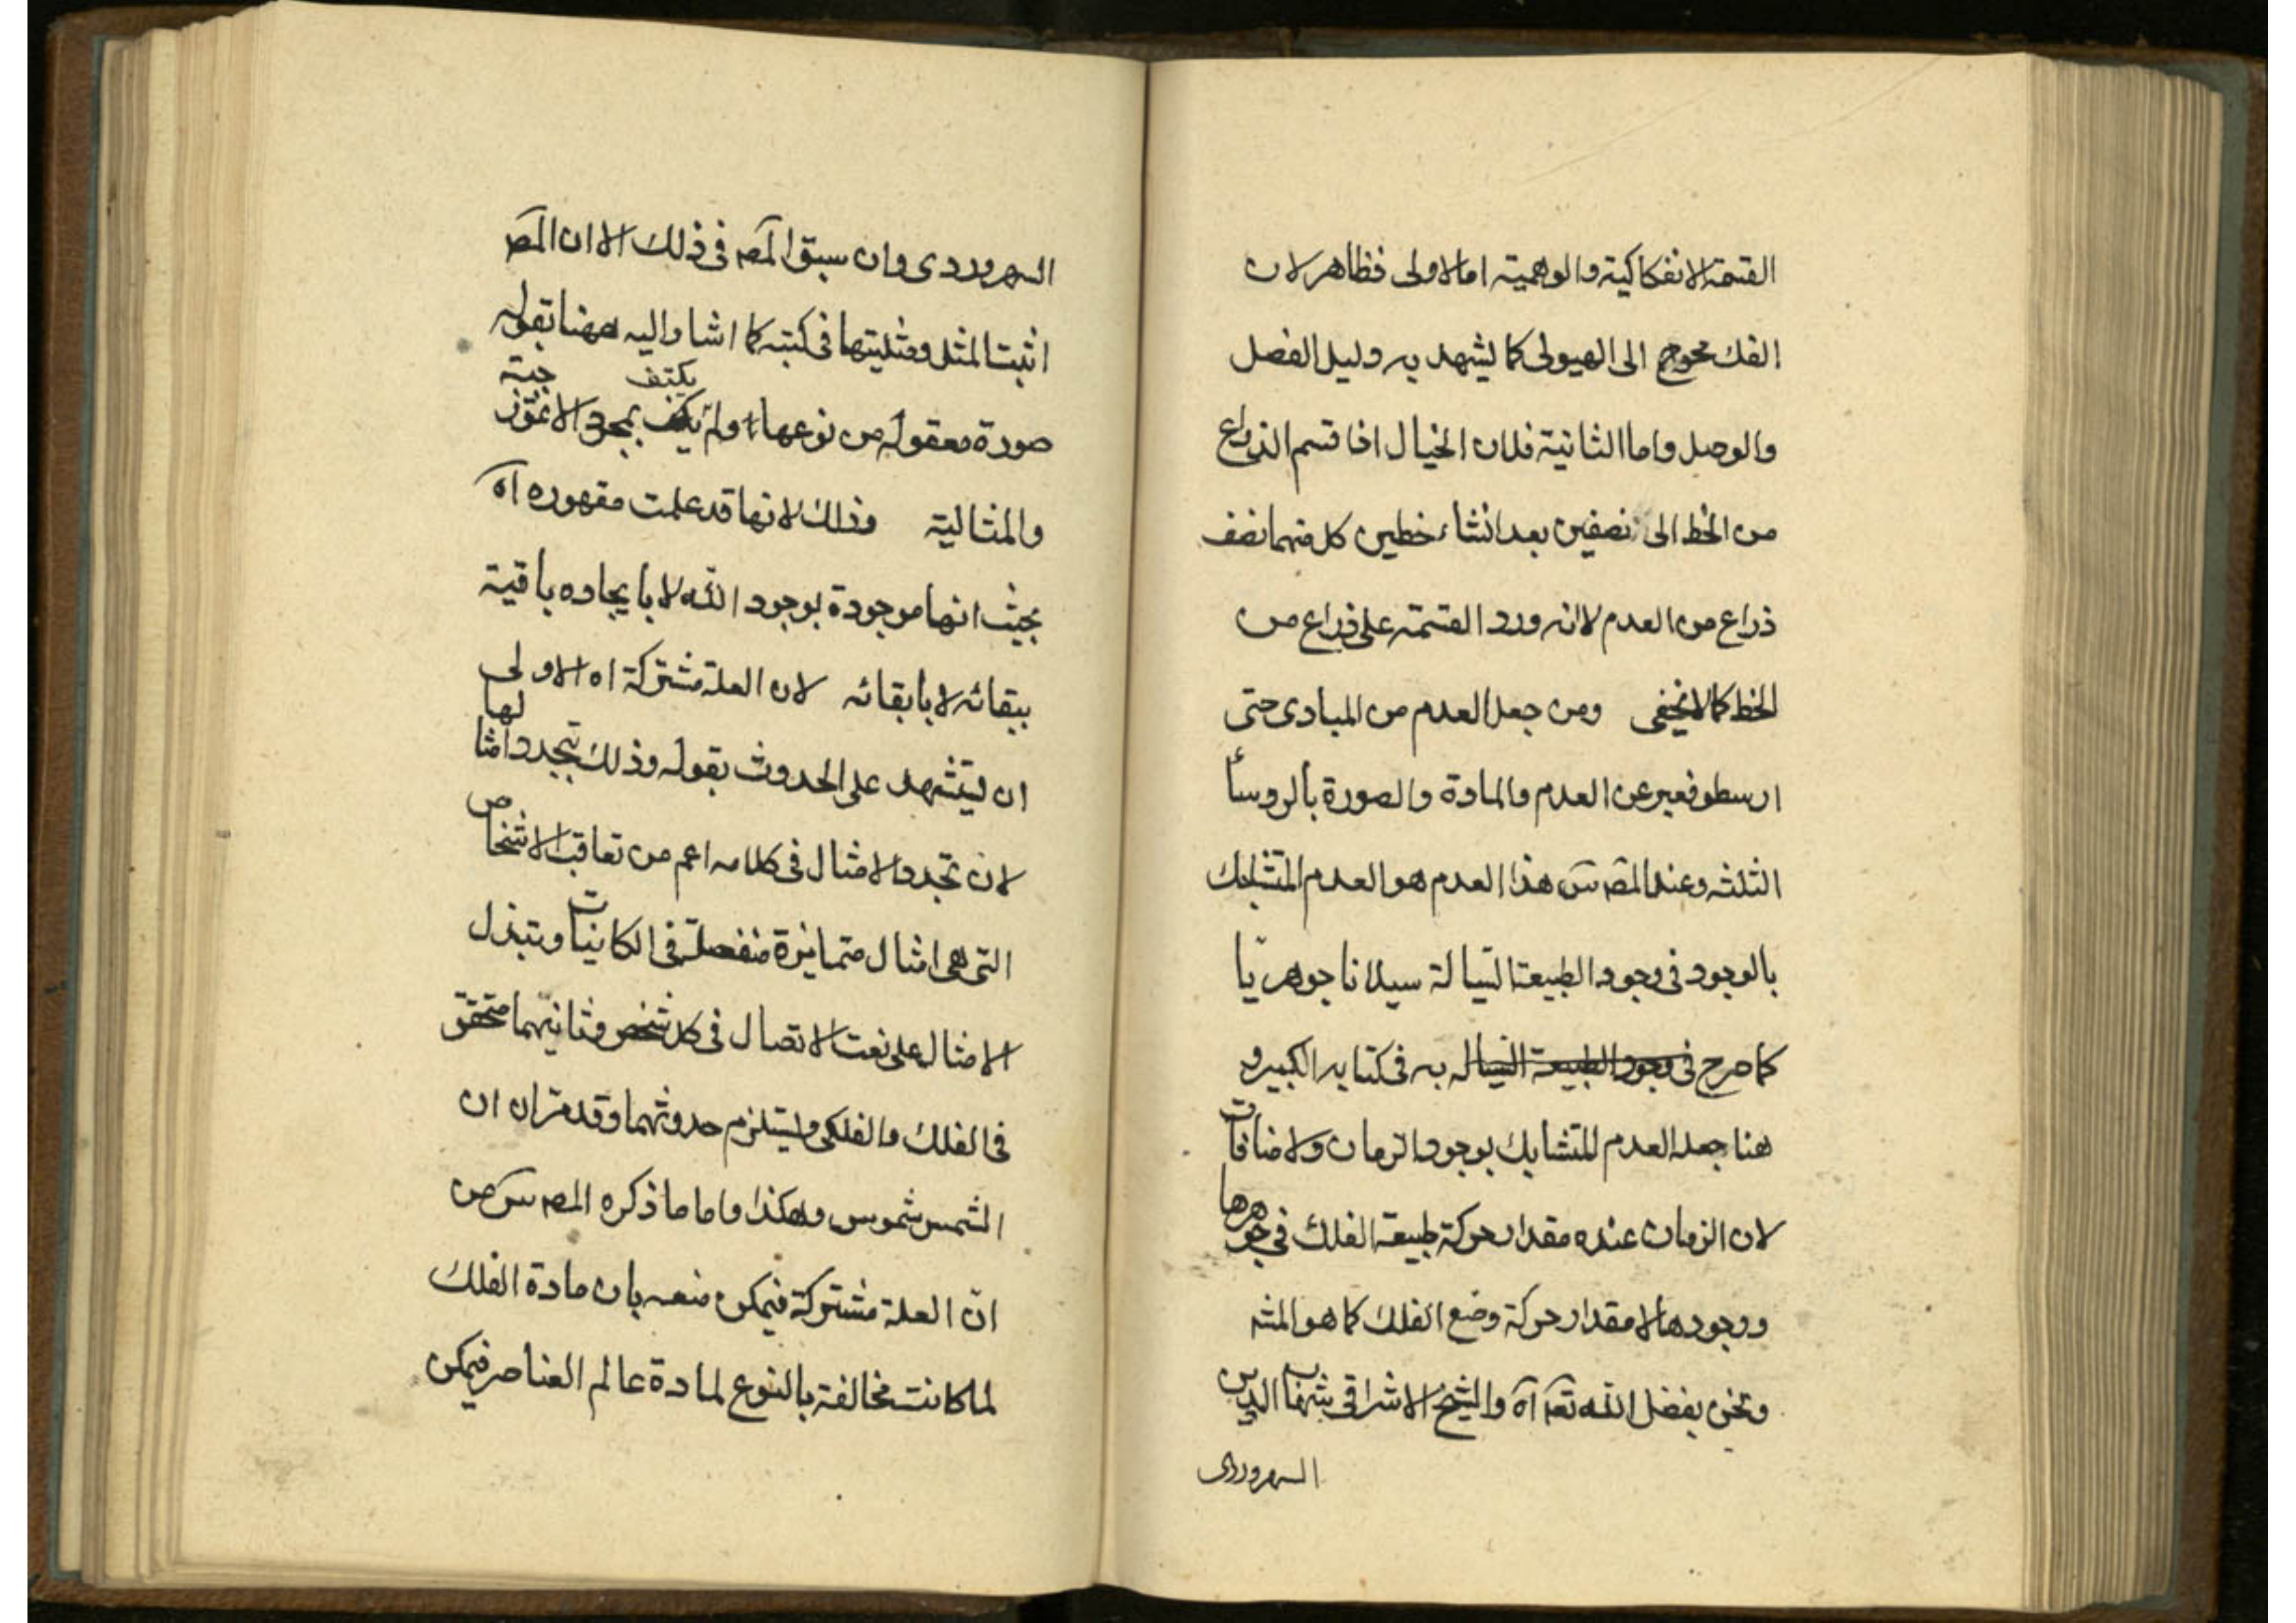 القسمة الانفكاكية والوهمية اما الاولى فظاهر لان
الفك محوج الى الهيولى كما يشهد به دليل الفصل
والوصل واما الثانية فلان الخيال اذا قسم الذراع
من الخط الى نصفين بعد انشاء خطين كل منهما نصف
ذراع من العدم لا انه ورد القسمة على ذراع من
الخط كما لا يخفى ومن جعل العدم من المبادى حتى
ارسطو فعبر عن العدم والمادة والصورة بالروسأ
الثلثه وعند المصـ سَ هذا العدم هو العدم المتشابك
بالوجود فى وجود الطبيعة السيالة سيلانا جوهريّا
كما صرح فى وجود الطبيعة السيالة به فى كتابه الكبير و
هنا جعل العدم المتشابك بوجود الزمان ولا منافات
لان الزمان عنده مقدار حركة طبيعة الفلك فى جوهرها
ووجودها لا مقدار حركة وضع الفلك كما هو المشـ
ونحن بفضل الله تعـ آه والشيخ الاشراقى شهاب الدين
السهروردى
السهروردى وان سبق المصـ فى ذلك الا ان المصـ
اثبت المثل ومثليتها فى كتبه كما اشار اليه ههنا بقوله
صورة معقوله من نوعها ولم يكتف بمجرد الانموذجية
والمثالية وذلك لانها قد علمت مقهوره آه
بحيث انها موجودة بوجود الله لا بايجاده باقية
ببقائه لا بابقائه لان العلة مشتركة اه الاولى
ان يستشهد على الحدوث بقوله وذلك بتجدد امثالها
لان تجدد الامثال فى كلامه اعم من تعاقب الاشخاص
التى هى امثال متمايزة منفصلة فى الكاينات وتبدل
الامثال على نعت الاتصال فى كل شخص وثانيهما متحقق
فى الفلك والفلكى ويستلزم حدوثهما وقد مرّ ان ان
الشمس شموس وهكذا واما ما ذكره المصـ سَ من
انّ العلة مشتركة فيمكن منعه بان مادة الفلك
لما كانت مخالفة بالنوع لمادة عالم العناصر فيمكن